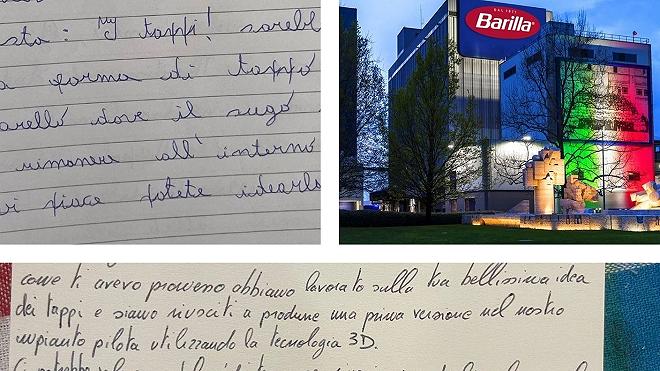 sta: My tappi! sarebb
a forma di tappo
arello dove il sugo
rimanere all'interno
vi piace potete idearlo
DAL 1877
Barilla
come ti avevo promesso abbiamo lavorato sulla tua bellissima idea
dei tappi e siamo riusciti a produrre una prima versione nel nostro
impianto pilota utilizzando la tecnologia 3D.